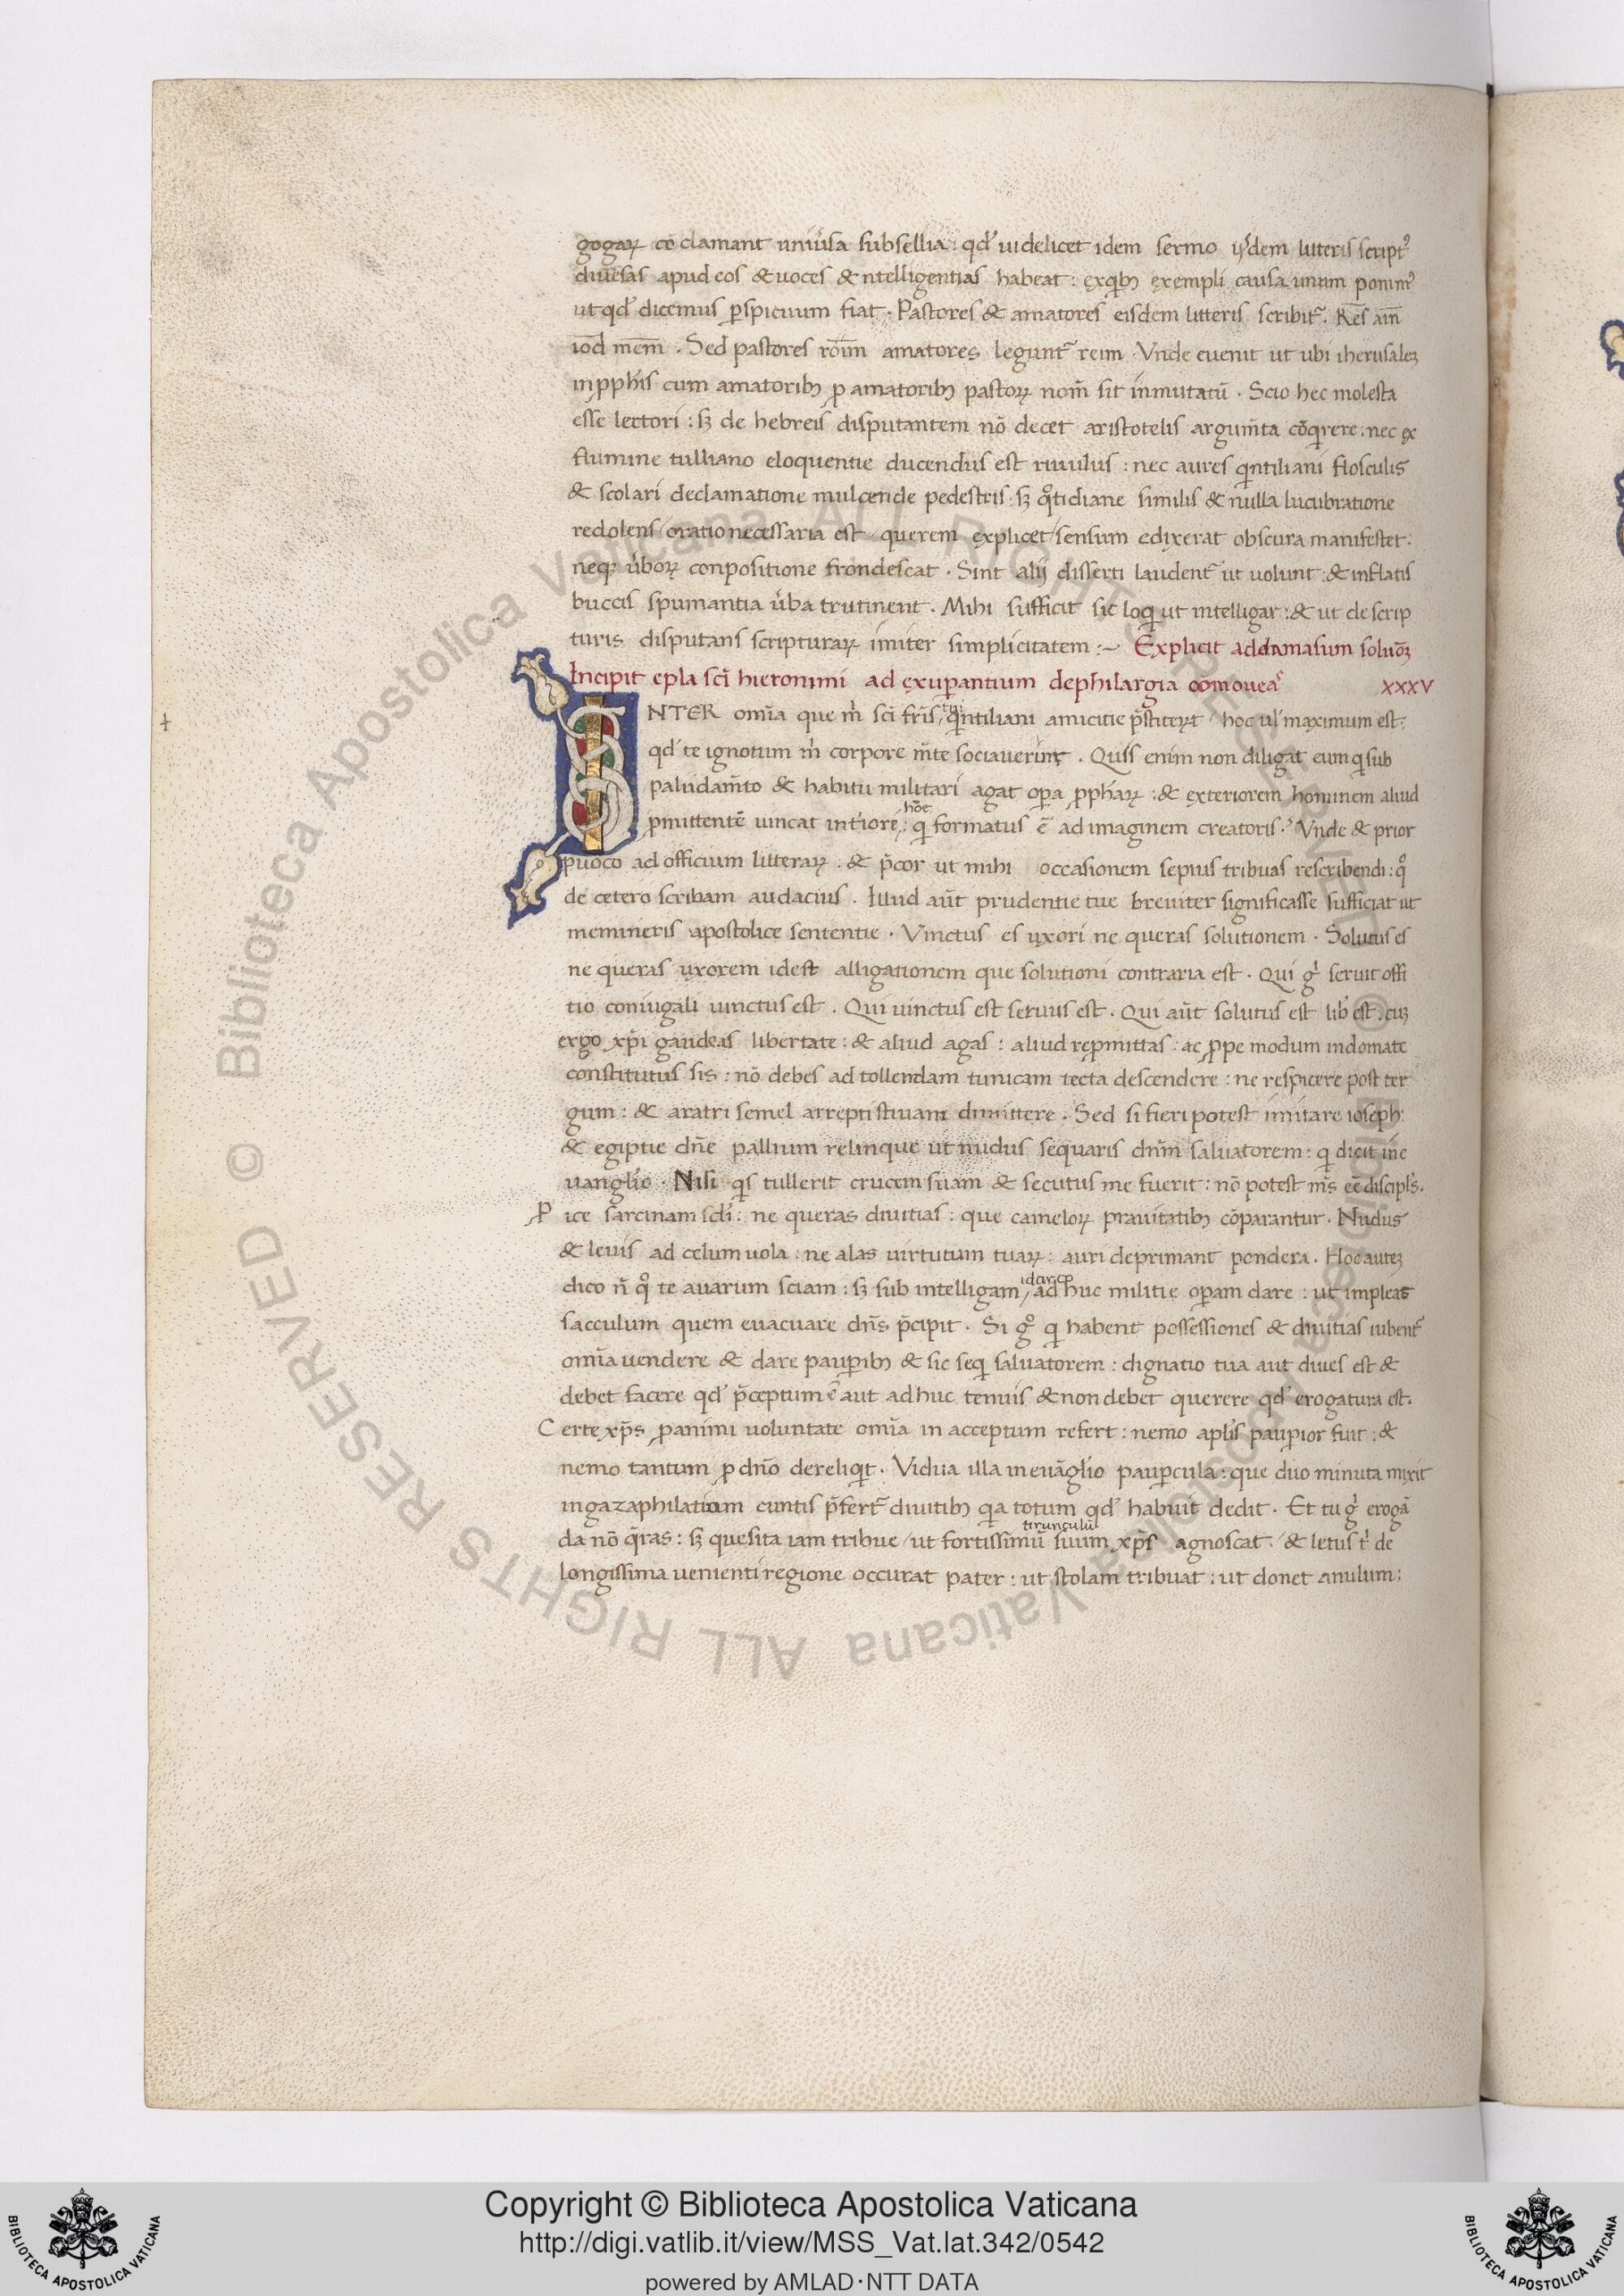 gogaꝝ cō clamant uniu̓sa subsellia : qd̓ uidelicet idem sermo ijsdem litteris script᷒
diuersas apud eos & uoces & ntelligentias habeat : ęxqib; ęxempli causa unum ponim᷒
ut qd̓ dicemus ꝑspicuum fiat . Pastores & amatores eisdem litteris scribit᷑ . Res ain̄
iod mem̄ . Sed pastores roim̄ amatores legunt᷑ reim Vnde euenit ut ubi iherusaleꝫ
in ꝓphis cum amatorib; ꝓ amatorib; pastoꝝ nom̄ sit inmutatū . Scio hec molesta
esse lectori : sꝫ de hebreis disputantem nō decet aristotelis argum̄ta cōqirere : nec ęx
flumine tulliano eloquentie ducendus est riuulus : nec aures qintiliani flosculis
& scolari declamatione mulcende pedestris : sꝫ qͦtidiane similis & nulla lucubratione
redolens / oratio necessaria est / querem ęxplicet / sensum edixerat obscura manifestet .
neqꝫ u̓boꝝ conpositione frondescat . Sint alij disserti laudent᷑ ut uolunt : & inflatis
buccis spumantia u̓ba trutinent . Mihi sufficit sic loqi ut intelligar : & ut de scrip
turis disputans scripturaꝝ imiter simplicitatem :~ Explicit addamasum soluōꝫ
Incipit epla sc̄i hieronimi ad ęxuꝑantium dephilargia cōmoueā XXXV
INTER om̄ia que m̓ sc̄i fr̄is, tui qintiliani amicitie p̄stiteꝝt / hoc ul̓ maximum est :
qd̓ te ignotum m̓ corpore m̄te sociauerint . Quis enim non diligat eum qi sub
paludam̄to & habitu militari agat oꝑa ꝓphaꝝ : & ęxteriorem hominem aliud
ꝓmittentē uincat int̓iore, hōe : qi formatus ē ad imaginem creatoris . Vnde & prior
ꝓuoco ad officium litteraꝝ . & p̄cor ut mihi occasionem sepius tribuas rescribendi : qͦ
de cetero scribam audacius . Illud aūt prudentie tue breuiter significasse sufficiat ut
memineris apostolice sententie . Vinctus es uxori ne queras solutionem . Solutus es
ne queras uxorem idest alligationem que solutioni contraria est . Qui g̓ seruit offi
tio coniugali uinctus est . Qui uinctus est seruus est . Qui aūt solutus est lib̓ est . cuꝫ
ergo xp̄i gaudeas libertate : & aliud agas : aliud reꝓmittas : ac ꝓpe modum indomate
constitutus sis : nō debes ad tollendam tunicam tecta descendere : ne respicere post ter
gum : & aratri semel arrepti stiuam dimittere . Sed si fieri potest imitare ioseph :
& egiptie dn̄e pallium relinque ut nudus sequaris dn̄m saluatorem : qi dicit in e
uanglio . Nisi qis tullerit crucem suam & secutus me fuerit : nō potest m̄s eē discipl̓s .
P ice sarcinam scl̓i : ne queras diuitias : que cameloꝝ prauitatib; cōparantur . Nudus
& leuis ad celum uola : ne alas uirtutum tuaꝝ : auri deprimant pondera . Hoc auteꝫ
dico n̄ qͦ te auarum sciam : sꝫ sub intelligam, idarco ad huc militie oꝑam dare : ut impleas
sacculum quem euacuare dn̄s p̄cipit . Si gͦ qi habent possessiones & diuitias iubent᷑
om̄ia uendere & dare pauꝑib; & sic seqi saluatorem : dignatio tua aut diues est &
debet facere qd̓ p̄ceptum ē aut ad huc tenuis & non debet querere qd̓ erogatura est .
C erte xp̄s ꝓanimi uoluntate om̄ia in acceptum refert : nemo apl̓is pauꝑior fuit : &
nemo tantum ꝓ dn̄o dereliqit . Vidua illa in euāglio pauꝑcula : que duo minuta mixit
in gazaphilatium cuntis p̄fert᷑ diuitib; qia totum qd̓ habuit dedit . Et tu g̓ erogā
da nō q̄ras : sꝫ quesita iam tribue / ut fortissimū tirunculū suum xp̄s agnoscat . / & letus t̓ de
longissima uenienti regione occurat pater : ut stolam tribuat : ut donet anulum :
Copyright © Biblioteca Apostolica Vaticana
http://digi.vatlib.it/view/MSS_Vat.lat.342/0542
powered by AMLAD·NTT DATA
BIBLIOTECA APOSTOLICA VATICANA
BIBLIOTECA APOSTOLICA VATICANA
© Biblioteca Apostolica Vaticana ALL RIGHTS RESERVED © Biblioteca Apostolica Vaticana ALL RIGHTS RESERVED